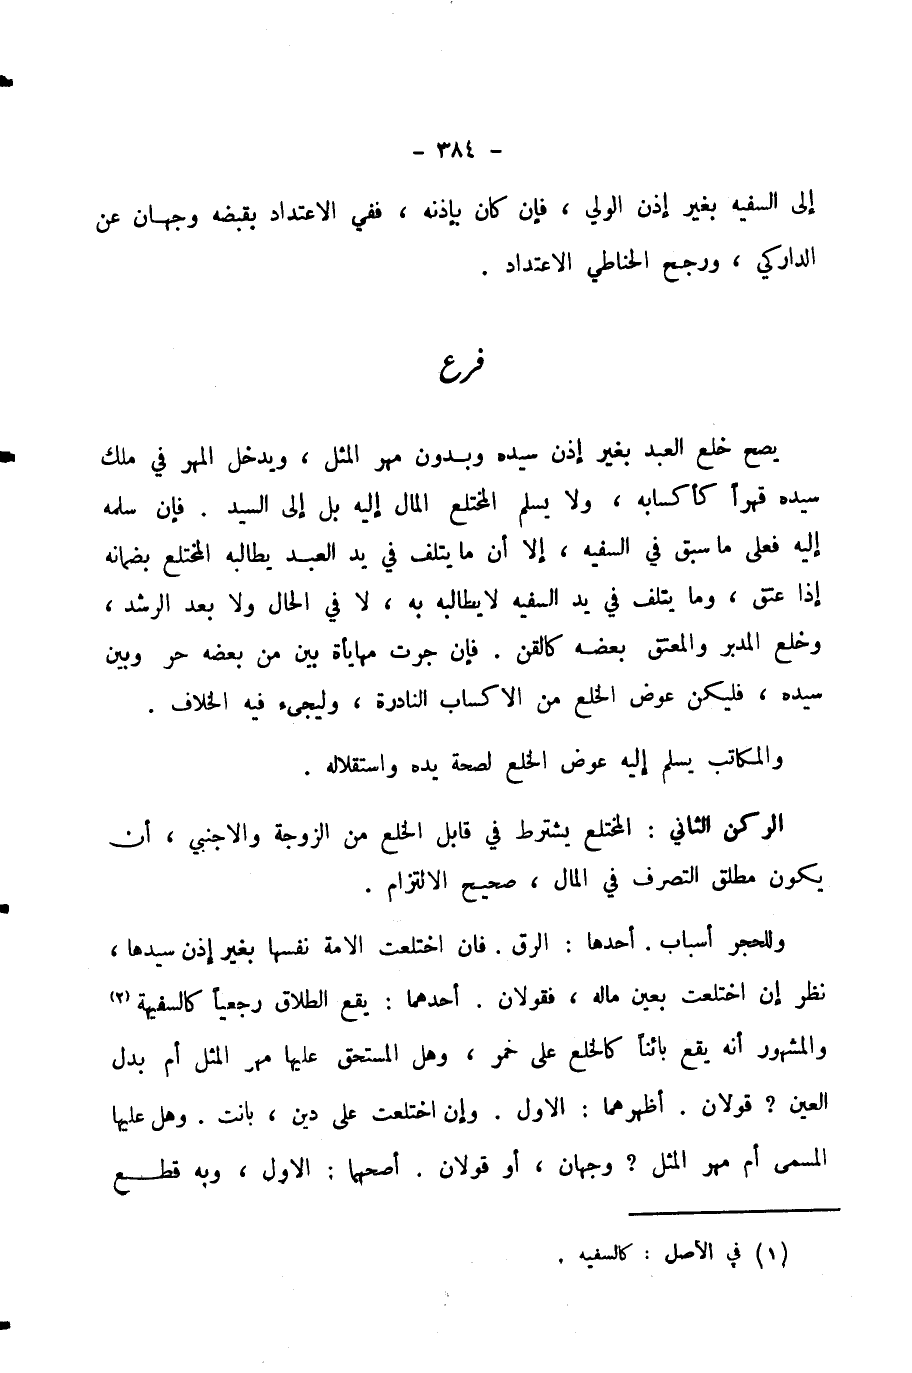 - ٣٨٤ -
إلى السفيه بغير إذن الولي ، فإن كان بإذنه ، ففي الاعتداد بقبضه وجهان عن
الداركي ، ورجح الحناطي الاعتداد .
فرع
يصح خلع العبد بغير إذن سيده وبدون مهر المثل ، ويدخل المهر في ملك
سيده قهراً كأكسابه ، ولا يسلم المختلع المال إليه بل إلى السيد . فإن سلمه
إليه فعلى ما سبق في السفيه ، إلا أن ما يتلف في يد العبد يطالبه المختلع بضمانه
إذا عتق ، وما يتلف في يد السفيه لا يطالبه به ، لا في الحال ولا بعد الرشد ،
وخلع المدبر والمعتق بعضه كالقن . فإن جرت مهايأة بين من بعضه حر وبين
سيده ، فليكن عوض الخلع من الاكساب النادرة ، وليجىء فيه الخلاف .
والمكاتب يسلم إليه عوض الخلع لصحة يده واستقلاله .
الركن الثاني : المختلع يشترط في قابل الخلع من الزوجة والاجنبي ، أن
يكون مطلق التصرف في المال ، صحيح الالتزام .
وللحجر أسباب . أحدها : الرق . فان اختلعت الامة نفسها بغير إذن سيدها ،
نظر إن اختلعت بعين ماله ، فقولان . أحدهما : يقع الطلاق رجعياً كالسفيهة (٢)
والمشهور أنه يقع بائناً كالخلع على خمر ، وهل المستحق عليها مهر المثل أم بدل
العين ? قولان . أظهرهما : الاول . وإن اختلعت على دين ، بانت . وهل عليها
المسمى أم مهر المثل ? وجهان ، أو قولان . أصحهما : الاول ، وبه قطع
(١) في الأصل : كالسفيه .